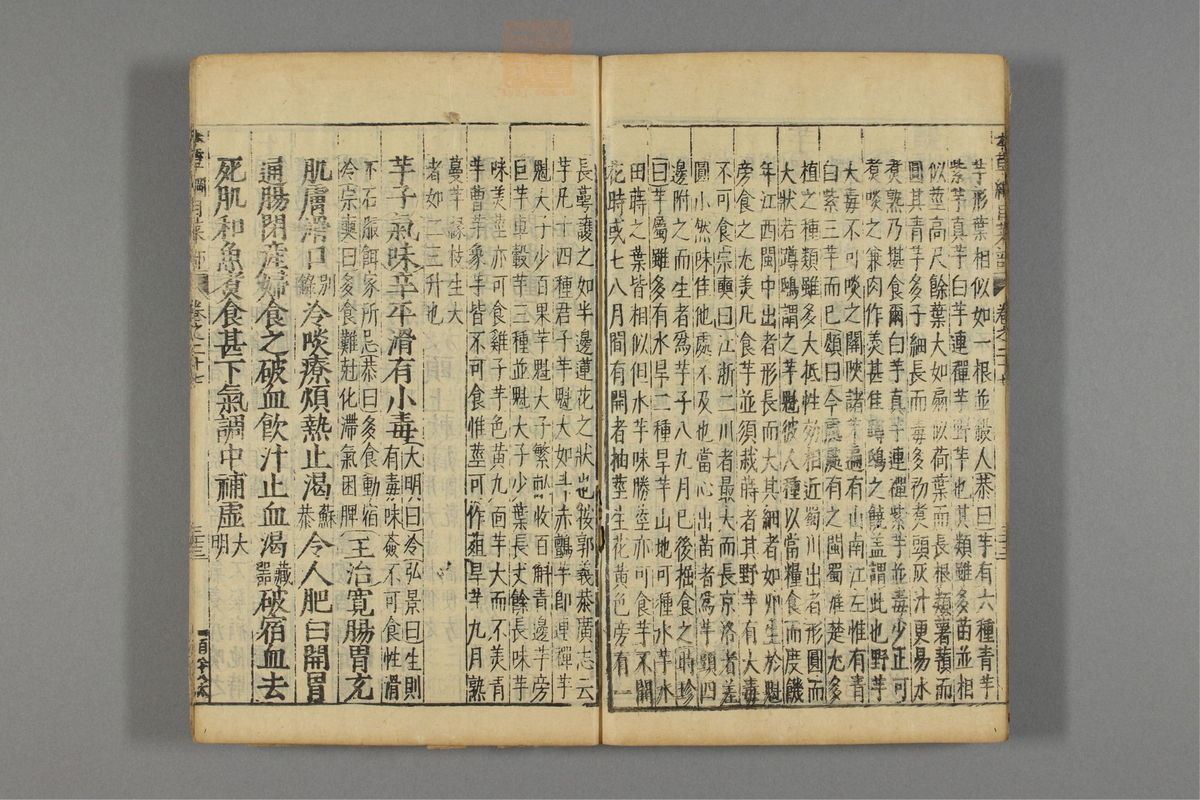 芋形葉相似如一根並殺人恭曰芋有六種青芋
紫芋真芋白芋連禪芋野芋也其類雖多苗並相
似莖高尺餘葉大如扇似荷葉而長根類薯蕷而
圓其青芋多子細長而毒多初煮須灰汁更易水
煮熟乃堪食爾白芋真芋連禪紫芋並毒少正可
煮啖之兼肉作羹甚佳蹲鴟之饒蓋謂此也野芋
大毒不可啖之關陝諸芋遍有山南江左惟有青
白紫三芋而已頌曰今處處有之閩蜀淮楚尤多
植之種類雖多大抵性效相近蜀川出者形圓而
大狀若蹲鴟謂之芋魁彼人種以當糧食而度饑
年江西閩中出者形長而大其細者如卵生於魁
旁食之尤美凡食芋並須栽蒔者其野芋有大毒
不可食宗奭曰江浙二川者最大而長京洛者差
圓小然味佳他處不及也當心出苗者爲芋頭四
邊附之而生者爲芋子八九月已後掘食之時珍
曰芋屬雖多有水旱二種旱芋山地可種水芋水
田蒔之葉皆相似但水芋味勝莖亦可食芋不開
花時或七八月間有開者抽莖生花黃色旁有一
長萼護之如半邊蓮花之狀也按郭義恭廣志云
芋凡十四種君子芋魁大如斗赤鸇芋即連禪芋
魁大子少百果芋魁大子繁畝收百斛青邊芋旁
巨芋車轂芋三種並魁大子少葉長丈餘長味芋
味美莖亦可食雞子芋色黃九面芋大而不美青
芋曹芋象芋皆不可食惟莖可作葅旱芋九月熟
蔓芋緣枝生大
者如二三升也
芋子氣味辛平滑有小毒大明曰冷弘景曰生則
有毒味薟不可食性滑
下石服餌家所忌恭曰多食動宿
冷宗奭曰多食難尅化滯氣困脾主治寬腸胃充
肌膚滑口別錄冷啖療煩熱止渴蘇恭令人肥白開胃
通腸閉產婦食之破血飲汁止血渴藏器破宿血去
死肌和魚煮食甚下氣調中補虛大明